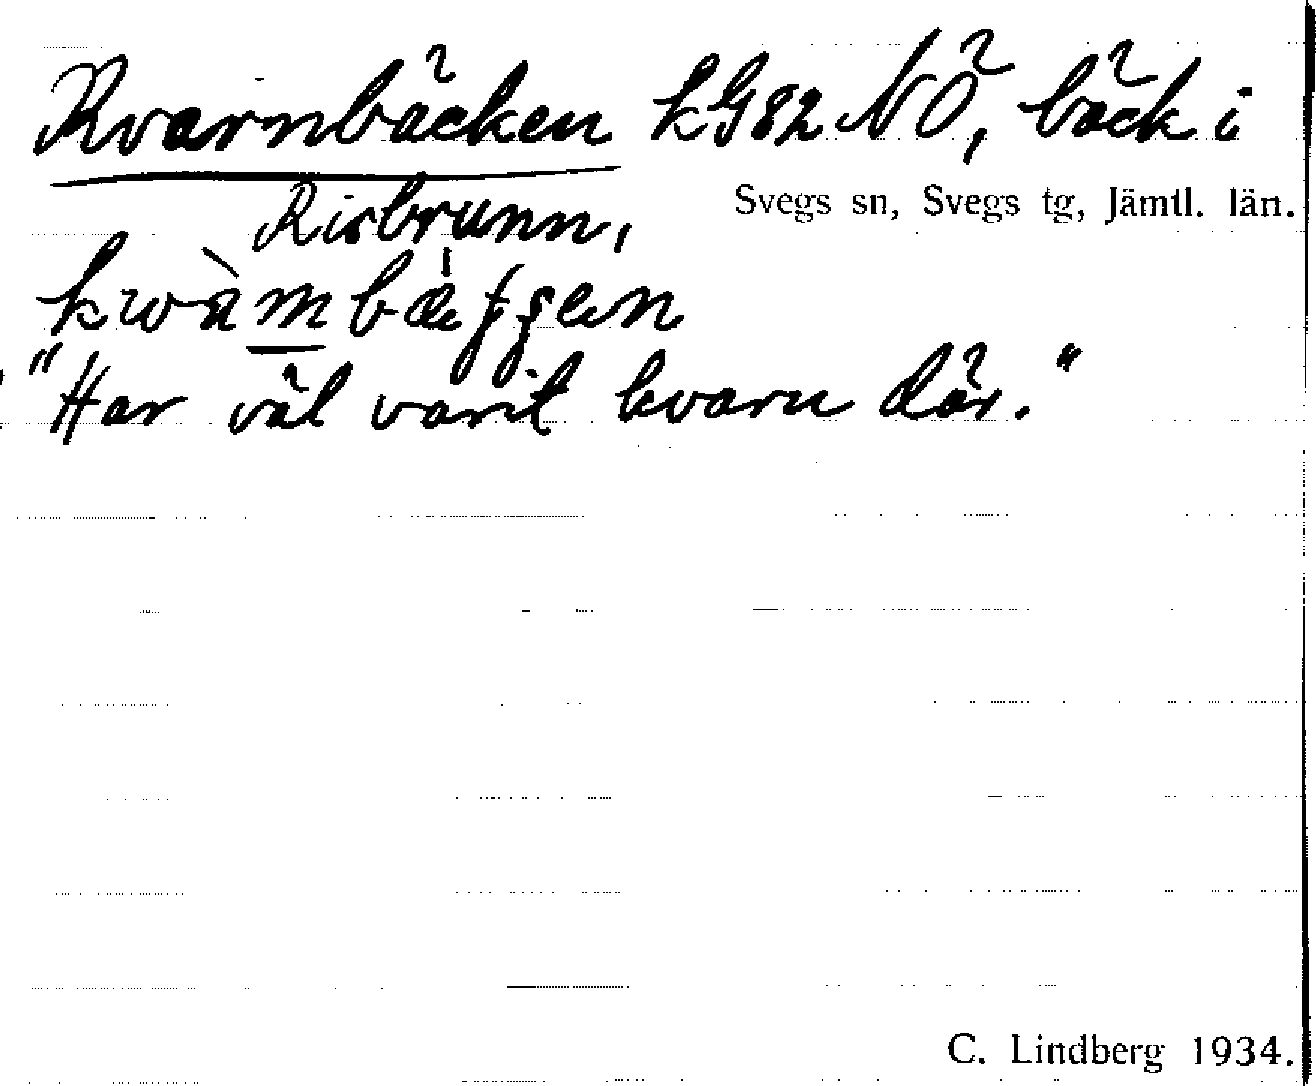 Kvarnbäcken kG82 NÖ, bäck i
Risbrunn, Svegs sn, Svegs tg, Jämtl. län.
"Har väl varit kvarn där."
C. Lindberg 1934.